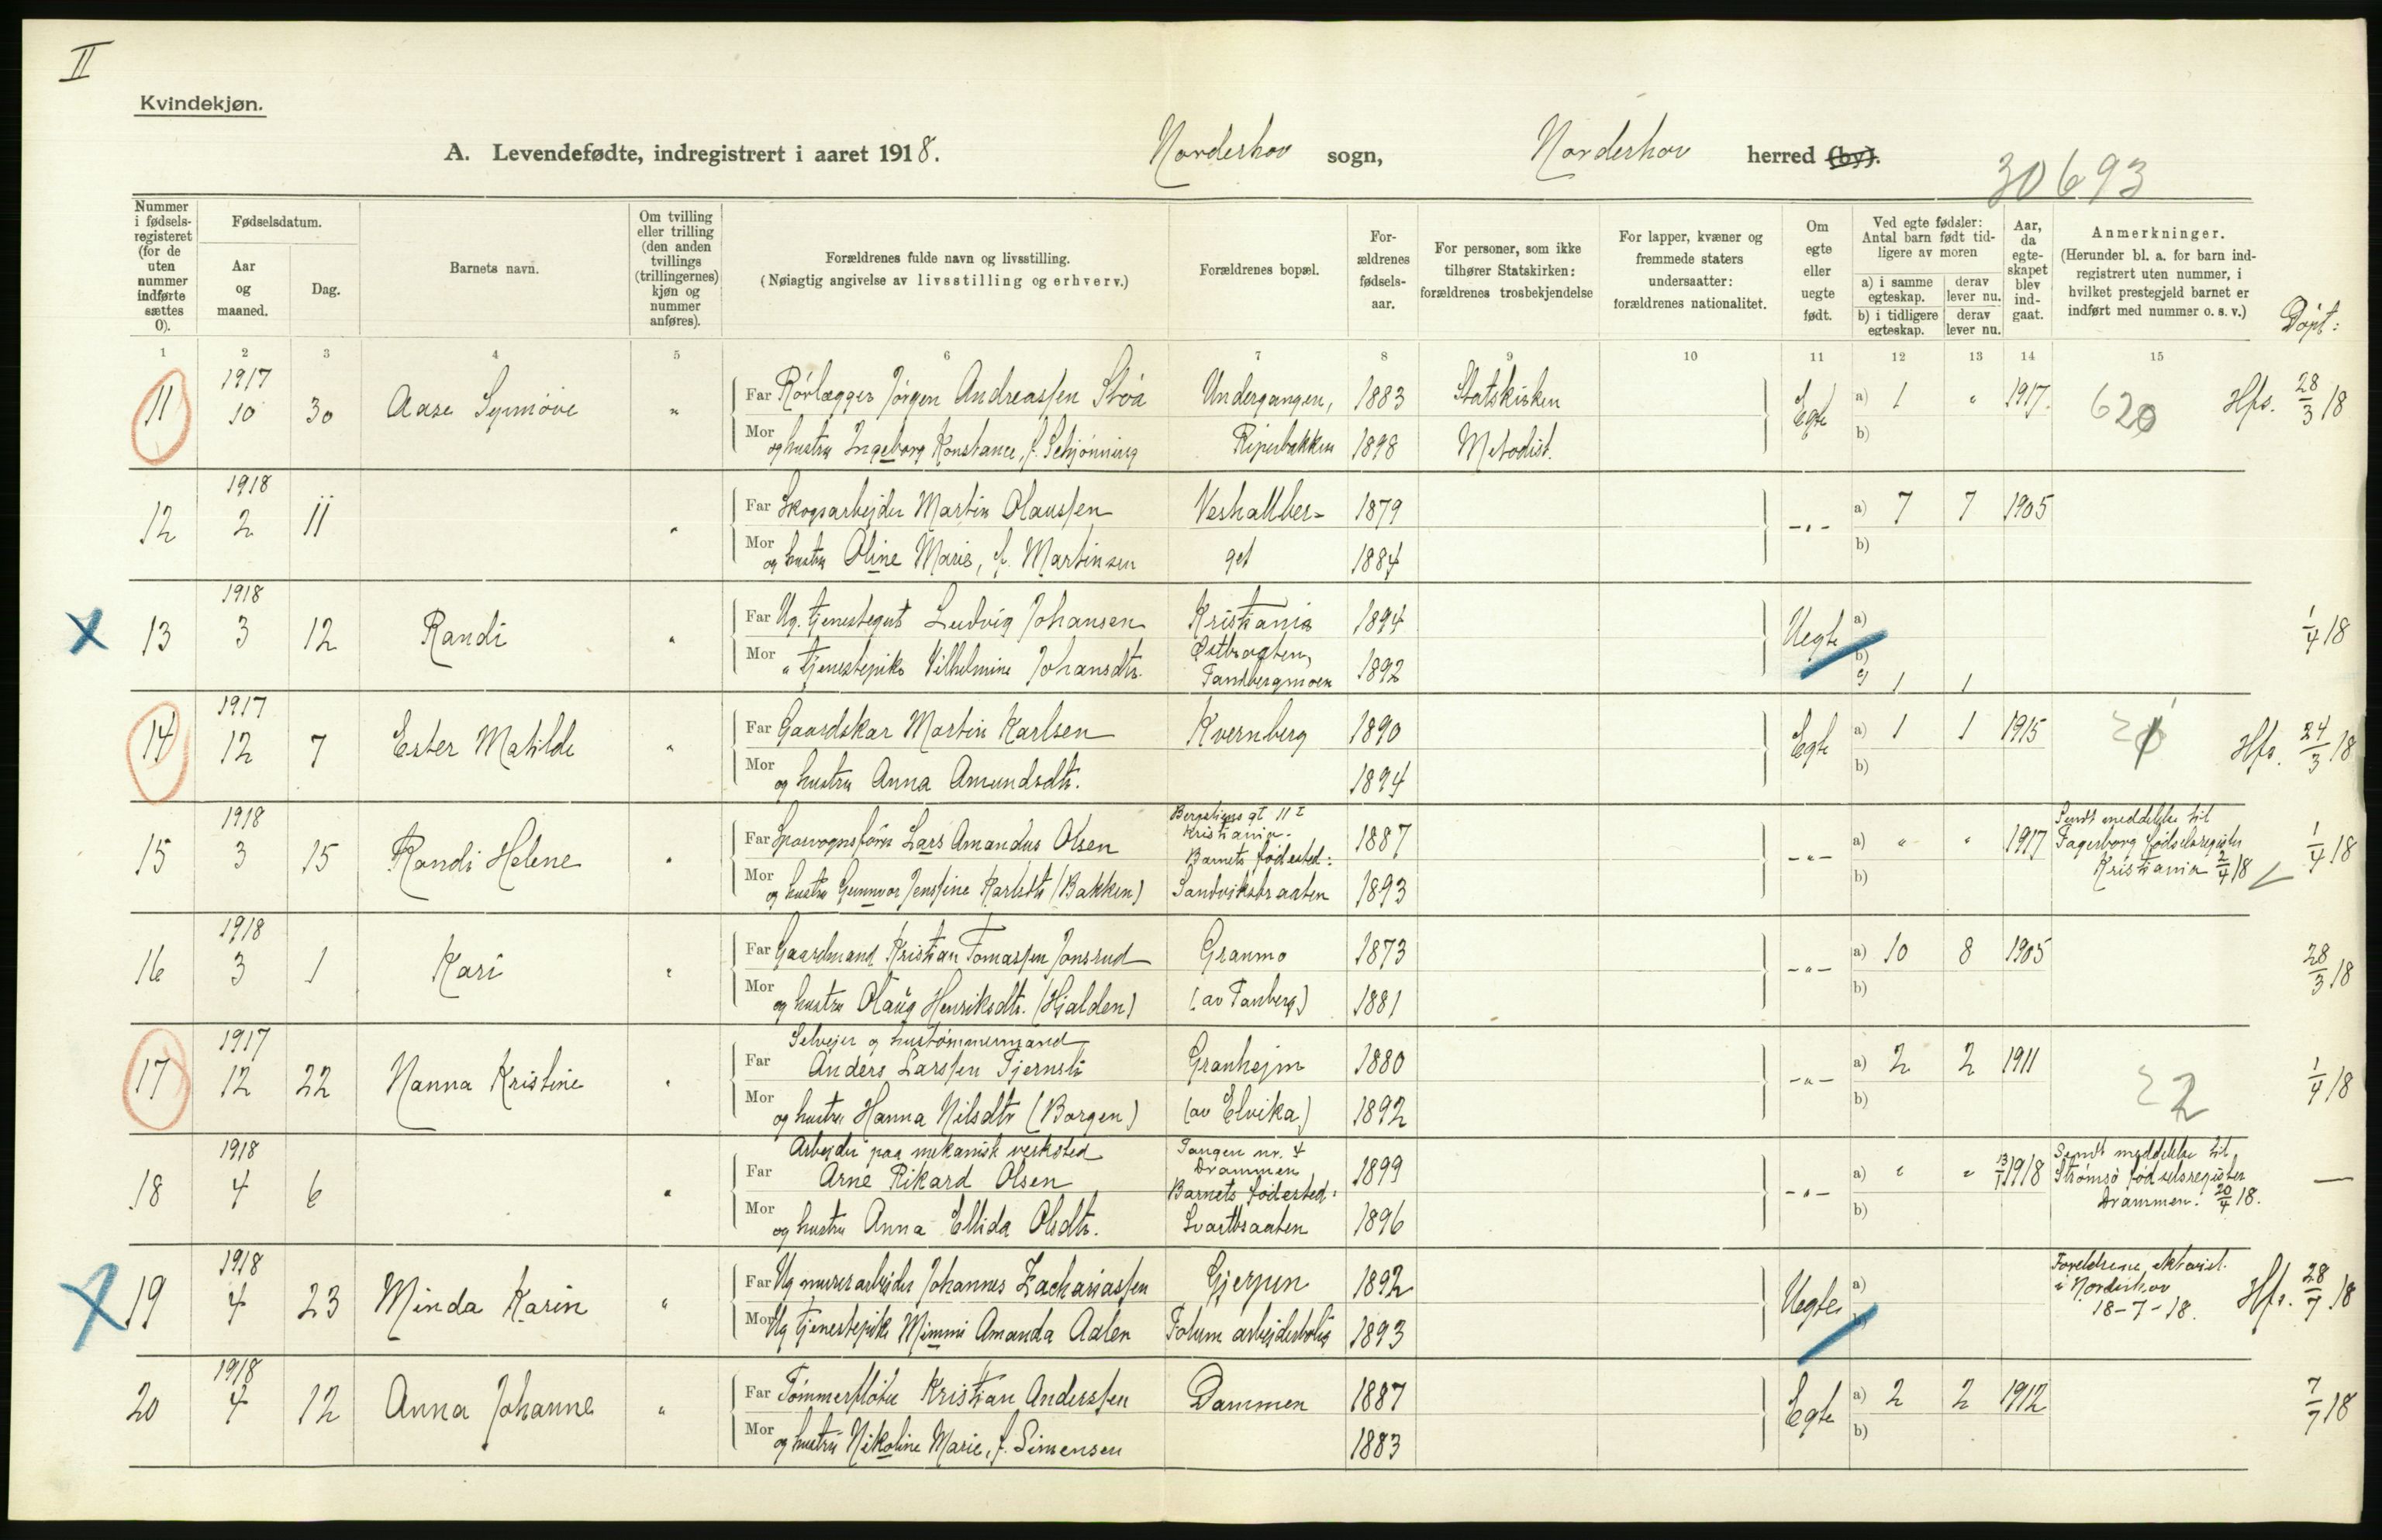 II
Kvindekjøn.
A. Levendefødte, indregistrert i aaret 1918. Norderhov sogn, Norderhov herred (by).
30693
Nummer i fødsels-registeret (for de uten nummer indførte sættes 0).
Fødselsdatum.
Aar og maaned.
Dag.
Barnets navn.
Om tvilling eller trilling (den anden tvillings (trillingernes) kjøn og nummer anføres).
Forældrenes fulde navn og livsstilling.
(Nøiagtig angivelse av livsstilling og erhverv.)
Forældrenes bopæl.
For-ældrenes fødsels-aar.
For personer, som ikke tilhører Statskirken: forældrenes trosbekjendelse
For lapper, kvæner og fremmede staters undersaatter: forældrenes nationalitet.
Om egte eller uegte født.
Ved egte fødsler: Antal barn født tid-ligere av moren
a) i samme egteskap. derav lever nu.
b) i tidligere egteskap. derav lever nu.
Aar, da egte-skapet blev ind-gaat.
Anmerkninger.
(Herunder bl. a. for barn ind-registrert uten nummer, i hvilket prestegjeld barnet er indført med nummer o. s. v.)
Døpt:
1 2 3 4 5 6 7 8 9 10 11 12 13 14 15
11 1917 10 30 Aase Synnøve " Far Rørlægger Jørgen Andreassen Stöa Undergangen, 1883 Statskirken Egte a) 1 " 1917. 620 Hfs. 28/3 18
Mor og hustru Ingeborg Konstance, f. Schjønning Riperbakken 1898 Metodist. b)
12 1918 2 11 " Far Skogsarbejder Martin Olaussen Veshallber- 1879 -"- a) 7 7 1905
Mor og hustru Oline Marie, f. Martinsen get 1884 b)
13 1918 3 12 Randi " Far Ug. tjenestegut Ludvig Johansen Kristiania 1894 Uegte a) 1/4 18
Mor " tjenestepike Vilhelmine Johansdtr. Østbraaten, Tandbergmoen 1892 b)
1 1
14 1917 12 7 Ester Matilde " Far Gaardskar Martin Karlsen Kvernberg 1890 Egte a) 1 1 1915 Hfs. 24/3 18
Mor og hustru Anna Amundsdtr. 1894 b)
15 1918 3 15 Randi Helene " Far Sporvognsfører Lars Amandus Olsen Bergsliens gt 11 I Kristiania. 1887 -"- a) " " 1917 Sendt meddelelse til Fagerborg fødselsregister Kristiania 2/4 18 1/4 18
Mor og hustru Gunnvor Jenssine Karlsdtr (Bakken) Barnets fødested: Sandviksbraaten 1893 b)
16 1918 3 1 Kari " Far Gaardmand Kristian Tomassen Jonsrud Granmo 1873 -"- a) 10 8 1905 28/3 18
Mor og hustru Olaug Henriksdtr. (Hjalden) (av Tanberg) 1881 b)
17 1917 12 22 Nanna Kristine " Far Selvejer og hustømmermand Anders Larssen Tjernsli Granhejm 1880 -"- a) 2 2 1911 22 1/4 18
Mor og hustru Hanna Nilsdtr (Borgen) (av Elvika) 1892 b)
18 1918 4 6 " Far Arbejder paa mekanisk verksted Arne Rikard Olsen Tangen nr. 4 Drammen 1899 -"- a) " " 1918 Sendt meddelelse til Strømsø fødselsregister Drammen. 20/4 18. —
Mor og hustru Anna Ellida Olsdtr. Barnets fødested: Svartbraaten 1896 b)
19 1918 4 23 Minda Karin " Far Ug murerarbejder Johannes Zachariassen Gjerpen 1892 Uegte a) Foreldrene ekteviet i Norderhov 18-7-18. Hfs. 28/7 18
Mor Ug tjenestepike Mimmi Amanda Aslen Folum arbejderbolig 1893
20 1918 4 12 Anna Johanne " Far Tømmerfløter Kristian Anderssen Dammen 1887 Egte a) 2 2 1912 7/7 18
Mor og hustru Nikoline Marie, f. Simensen 1883 b)